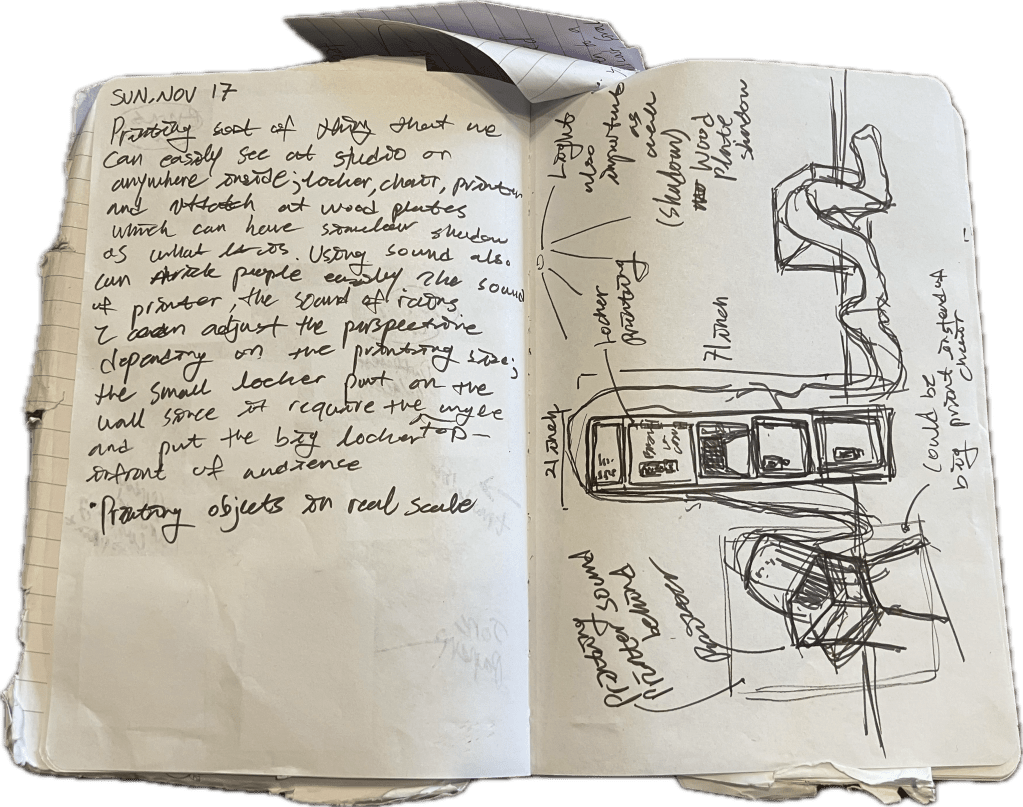 SUN, NOV 17
Printing sort of thing that we
can easily see at studio or
anywhere inside; locker, chair, printer
and attach at wood plates
which can have similar shadow
as what it is. Using sound also
can trick people easily the sound
of printer, the sound of
I can adjust the perspective
depending on the printing size;
the small locker put on the
wall since it require the angle
and put the big locker top-
infront of audience
• Printing objects in real scale
Light
also
importante
as
well
(shadow)
Wood
Plate
shadow
Locker
printing
71 inch
21 inch
Could be
big print instead of
chair
Printing sound
printer
behind